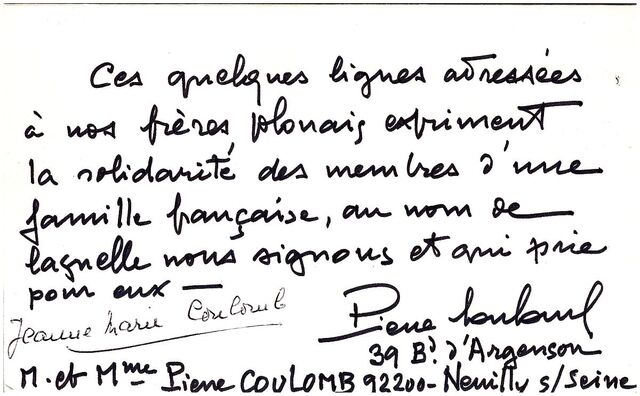 Ces quelques lignes adressées
à nos frères polonais expriment
la solidarité des membres d'une
famille française, au nom de
laquelle nous signons et qui prie
pour eux —
Jeanne Marie Coulomb
Pierre Coulomb
39 Bd d'Argenson
M. et Mme Pierre COULOMB 92200 - Neuilly s/Seine